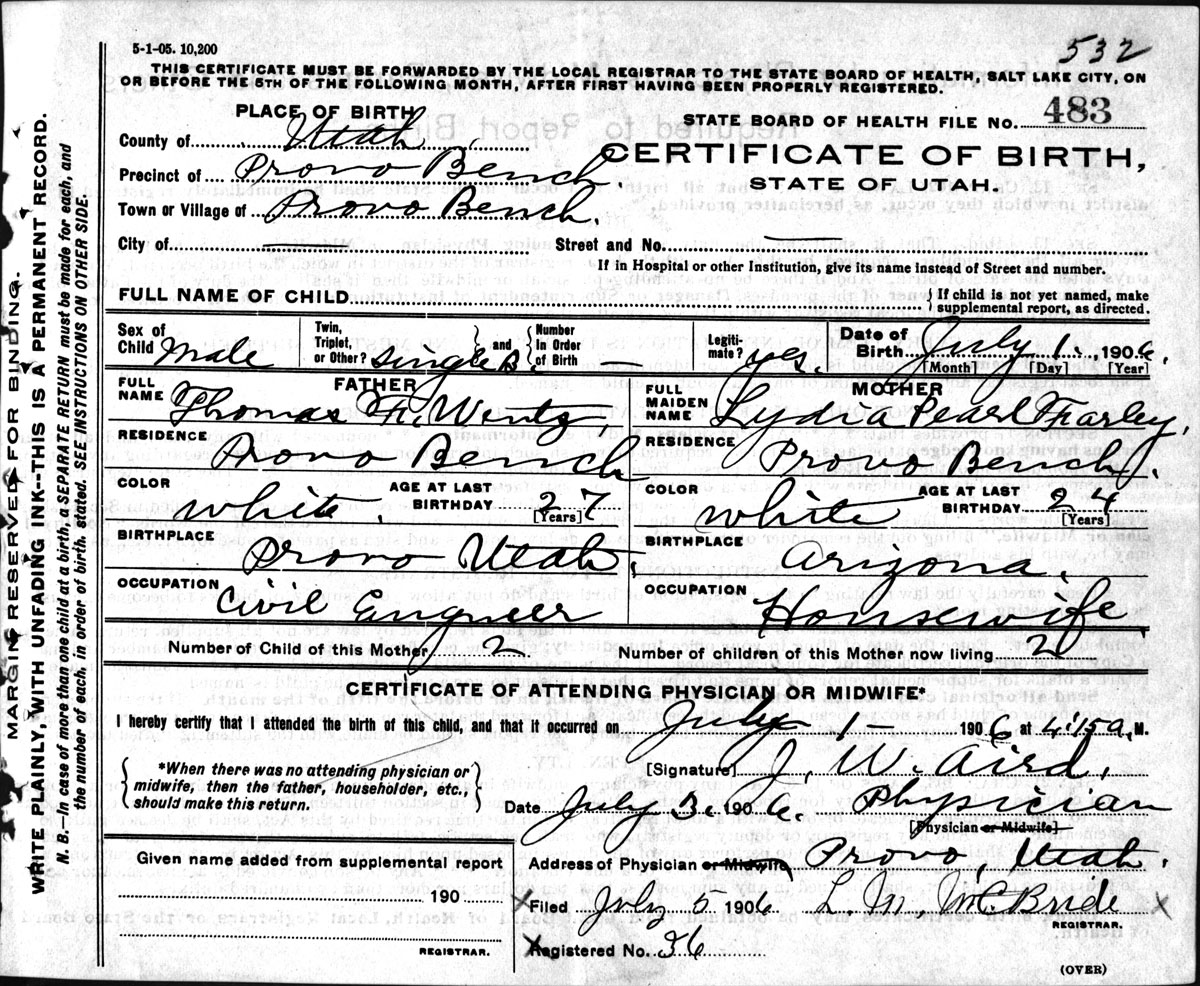 5-1-05. 10,200
532
THIS CERTIFICATE MUST BE FORWARDED BY THE LOCAL REGISTRAR TO THE STATE BOARD OF HEALTH, SALT LAKE CITY, ON
OR BEFORE THE 5TH OF THE FOLLOWING MONTH, AFTER FIRST HAVING BEEN PROPERLY REGISTERED.
PLACE OF BIRTH
STATE BOARD OF HEALTH FILE NO. 483
County of Utah
CERTIFICATE OF BIRTH,
Precinct of Provo Bench
STATE OF UTAH.
Town or Village of Provo Bench.
City of —
Street and No. —
If in Hospital or other Institution, give its name instead of Street and number.
FULL NAME OF CHILD
If child is not yet named, make
supplemental report, as directed.
Sex of Child Male
Twin, Triplet, or Other? single and Number In Order of Birth —
Legitimate? yes.
Date of Birth July 1. 1906.
[Month] [Day] [Year]
FATHER
FULL NAME Thomas F. Wentz,
MOTHER
FULL MAIDEN NAME Lydia Pearl Farley,
RESIDENCE Provo Bench
RESIDENCE Provo Bench.
COLOR White. AGE AT LAST BIRTHDAY 27 [Years]
COLOR White AGE AT LAST BIRTHDAY 24 [Years]
BIRTHPLACE Provo Utah.
BIRTHPLACE Arizona.
OCCUPATION Civil Engineer
OCCUPATION Housewife.
Number of Child of this Mother 2
Number of children of this Mother now living 2
CERTIFICATE OF ATTENDING PHYSICIAN OR MIDWIFE*
I hereby certify that I attended the birth of this child, and that it occurred on July 1 — 1906 at 4:15 a. M.
*When there was no attending physician or
midwife, then the father, householder, etc.,
should make this return.
[Signature] J. W. Aird,
Date July 3. 1906. Physician
[Physician or Midwife]
Given name added from supplemental report
190
REGISTRAR.
Address of Physician or Midwife Provo Utah.
X Filed July 5 1906 L. M. McBride X
REGISTRAR.
X Registered No. 36
(OVER)
MARGIN RESERVED FOR BINDING.
WRITE PLAINLY, WITH UNFADING INK--THIS IS A PERMANENT RECORD.
N. B.—In case of more than one child at a birth, a SEPARATE RETURN must be made for each, and
the number of each, in order of birth, stated. SEE INSTRUCTIONS ON OTHER SIDE.